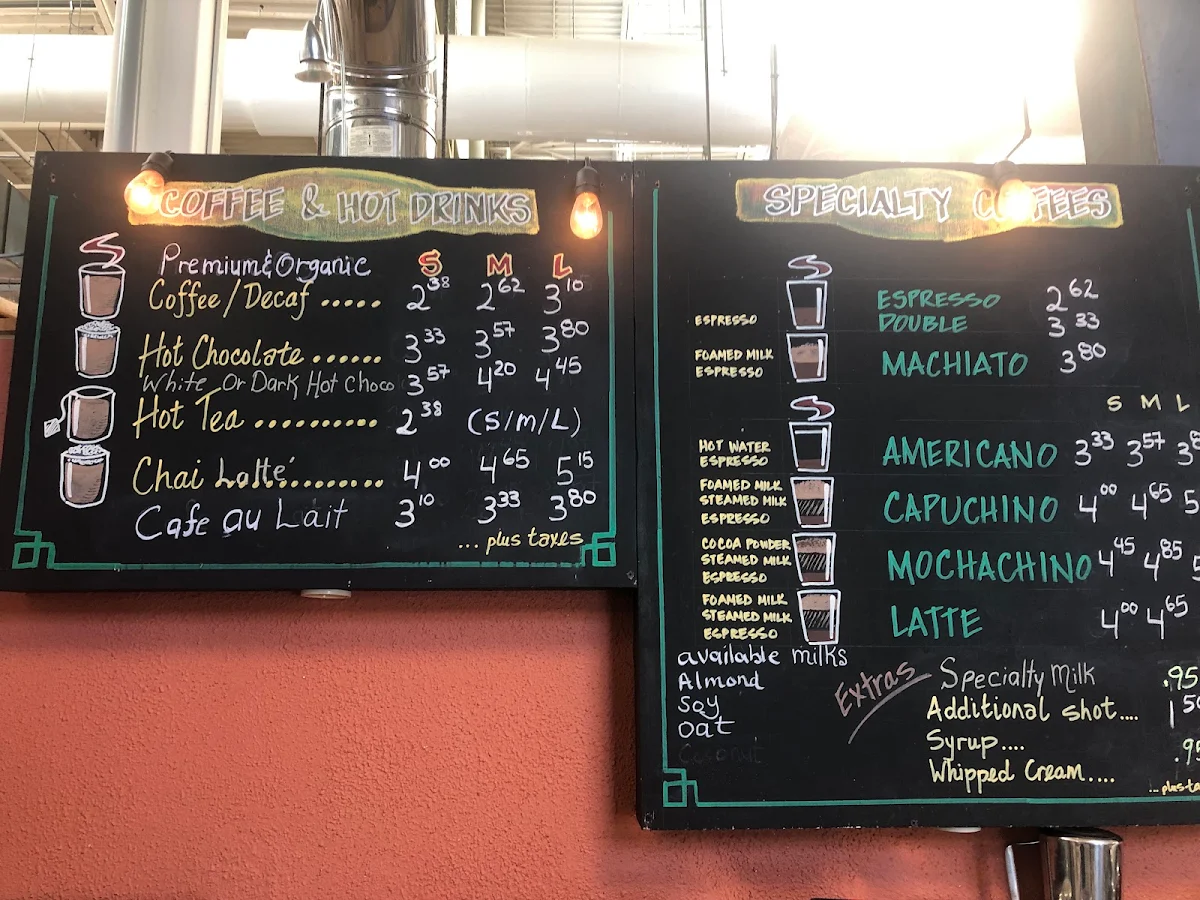 COFFEE & HOT DRINKS
Premium & Organic S M L
Coffee/Decaf ..... 2 38 2 62 3 10
Hot Chocolate ...... 3 33 3 57 3 80
White Or Dark Hot Choco 3 57 4 20 4 45
Hot Tea .......... 2 38 (S/M/L)
Chai Latté ......... 4 00 4 65 5 15
Cafe au Lait 3 10 3 33 3 80
... plus taxes
SPECIALTY COFFEES
ESPRESSO
ESPRESSO 2 62
DOUBLE 3 33
FOAMED MILK
ESPRESSO
MACHIATO 3 80
S M L
HOT WATER
ESPRESSO
AMERICANO 3 33 3 57 3
FOAMED MILK
STEAMED MILK
ESPRESSO
CAPUCHINO 4 00 4 65 5
COCOA POWDER
STEAMED MILK
ESPRESSO
MOCHACHINO 4 45 4 85
FOAMED MILK
STEAMED MILK
ESPRESSO
LATTE 4 00 4 65
available milks
Almond
Soy
Oat
Coconut
Extras
Specialty Milk .95
Additional shot.... 1 50
Syrup.... .95
Whipped Cream....
... plus